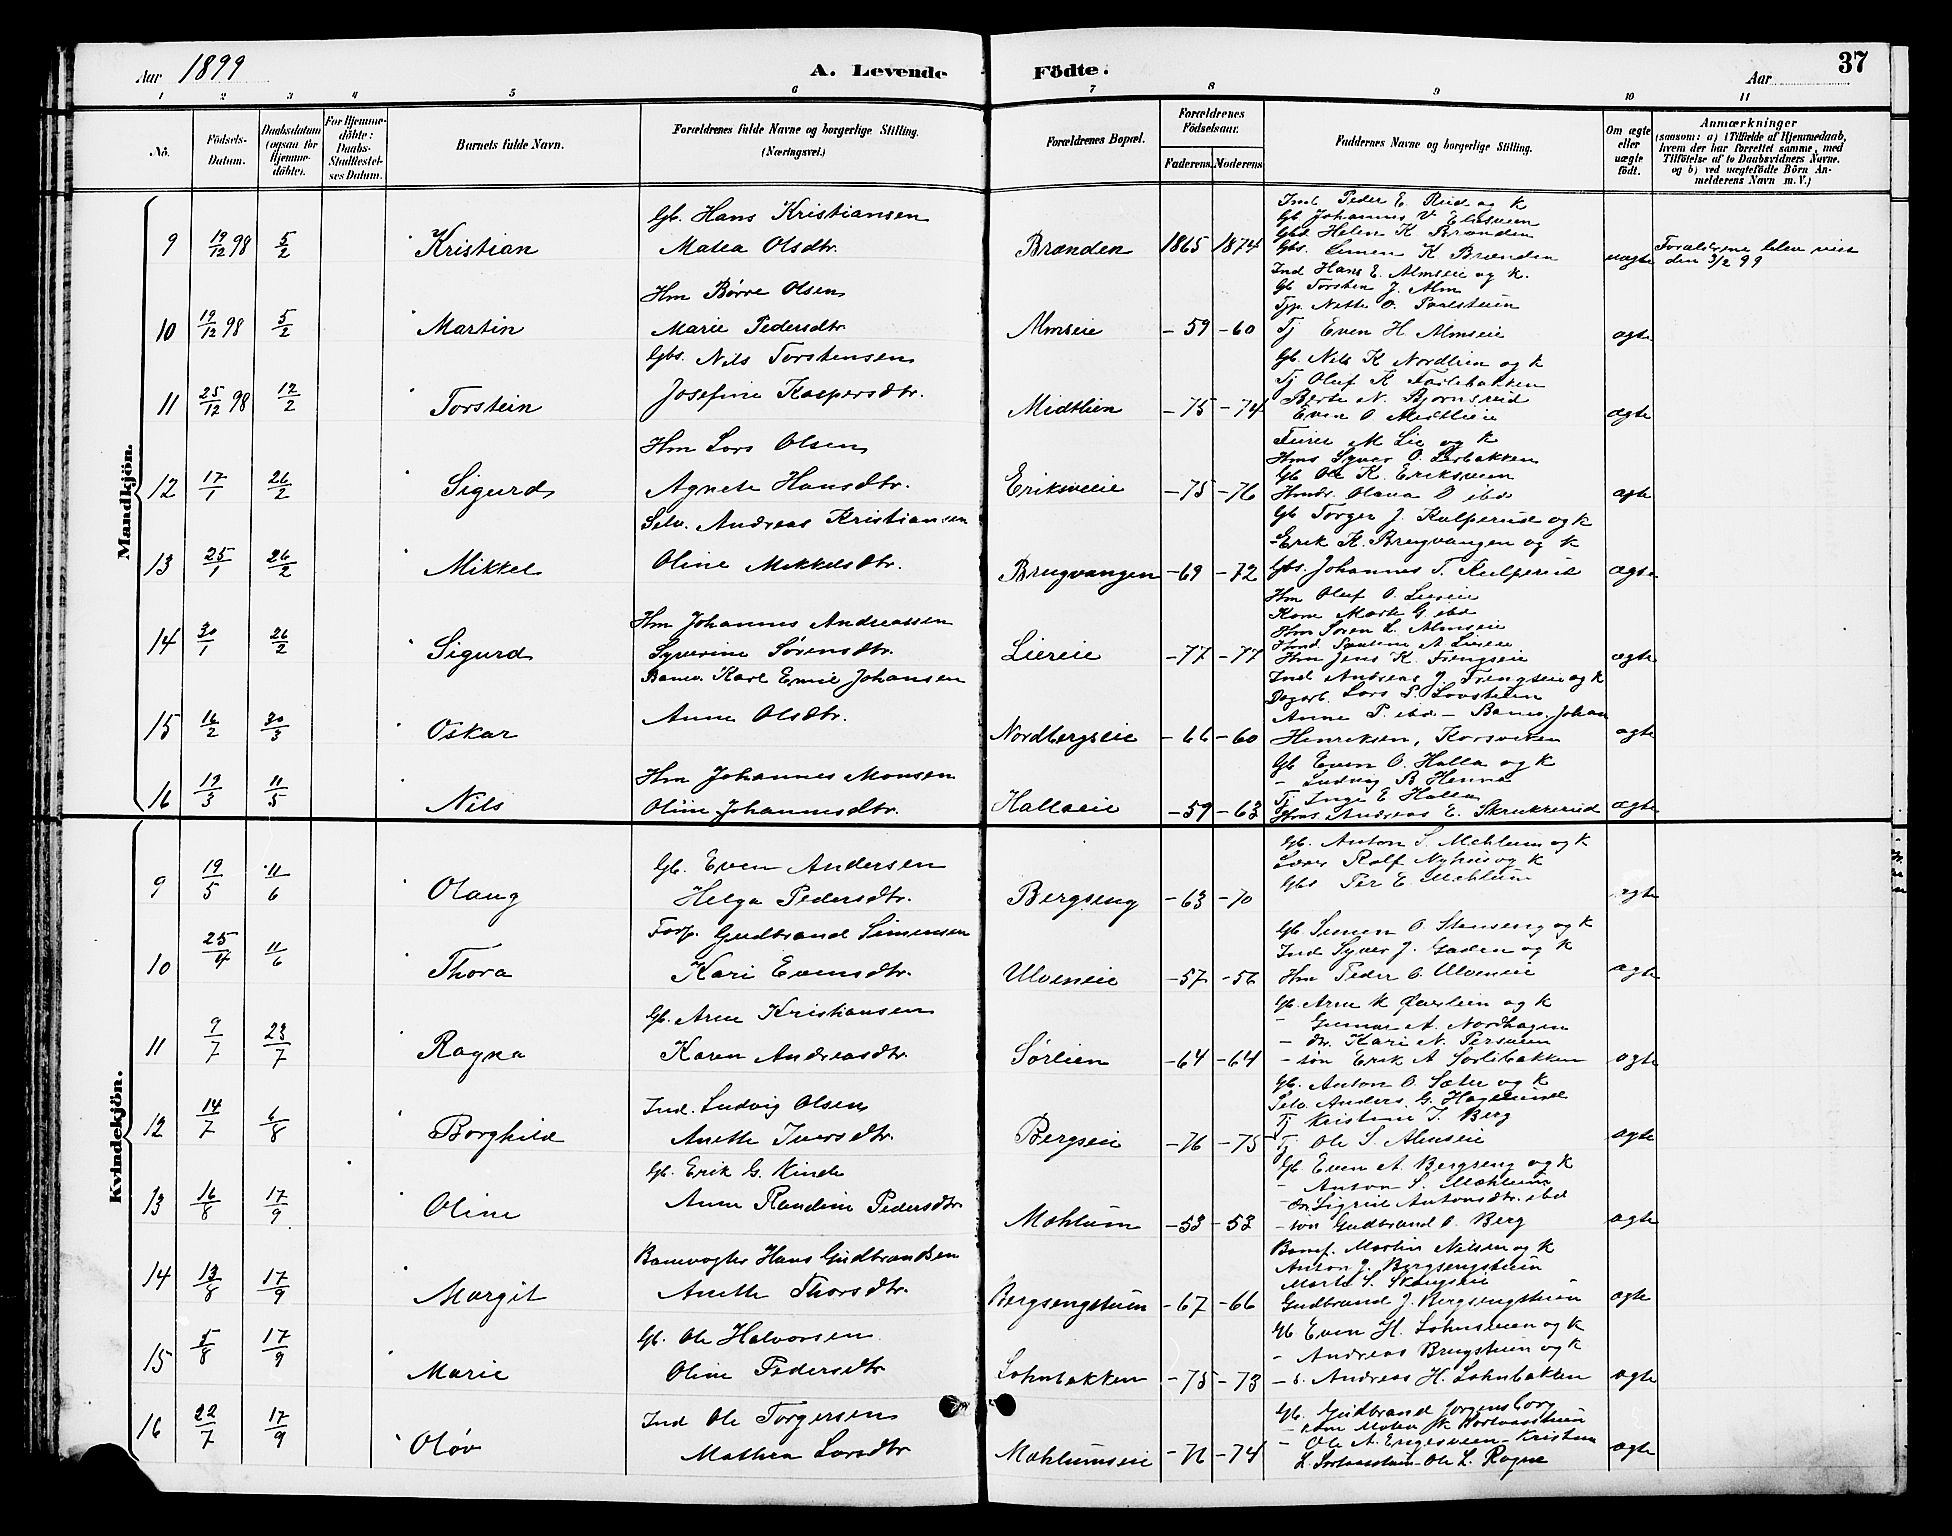 Aar 1899
A. Levende Fødte.
Aar
37
1 2 3 4 5 6 7 8 9 10 11
No.
Födsels-Datum.
Daabsdatum (ogsaa for Hjemmedöbte).
For Hjemmedöbte: Daabs-Stadfæstelses Datum.
Barnets fulde Navn.
Forældrenes fulde Navne og borgerlige Stilling. (Næringsvei.)
Forældrenes Bopæl.
Forældrenes Födselsaar.
Faderens. Moderens
Faddernes Navne og borgerlige Stilling.
Om ægte eller uægte födt.
Anmærkninger
(saasom: a) i Tilfælde af Hjemmedaab, hvem der har forrettet samme, med Tilföielse af to Daabsvidners Navne. og b) ved uægtefödte Börn Anmelderens Navn m. V.)
Mandkjön.
9 19/12 98 5/2 Kristian
Gb. Hans Kristiansen
Matea Olsdtr.
Brænden 1865 1874
Ind Peder E. Rud og K
Gb Johannes V Elisveen
Gbd Helen K Brænden
Gbs. Simen K Brænden
uægte
Forældrene blev viet
den 3/2 99
10 19/12 98 5/2 Martin
Hm Børre Olsen
Marie Pedersdtr.
Almseie -59 -60
Ind Hans E. Almseie og K.
Gb Torsten J. Alm
Tj Even H Almseie
ægte
11 25/12 98 12/2 Torstein
Gbs. Nils Torstensen
Josefine Kaspersdtr.
Midtlien -75 -74
Gb. Nils K Nordlien og K
Tj Oluf K
Berte N. Bjørnsveid
Even O Midtlien
ægte
12 17/1 26/2 Sigurd
Hm Lars Olsen
Agnete Hansdtr.
Eriksveie -75 -76
M Lie og K
Hms Syver O.
Gb Ole K. Eriksveen
Olava O ibd
ægte
13 25/1 26/2 Mikkel
Selv. Andreas Kristiansen
Oline Mikkelsdtr.
Brugvangen -69 -72
Gb Torger J. Kulperud og K
- Erik K. Brugvangen og K
Gbs. Johannes T. Kulperud
ægte
14 30/1 26/2 Sigurd
Hm Johannes Andreassen
Syverine Sørensdtr.
Liereie -77 -77
Hm Oluf O. Liereie
Kone Marte G ibd
Hm Søren L. Almseie
Hmd Pauline A Liereie
Hm Jens K.
ægte
15 16/2 30/3 Oskar
Banev. Karl Emil Johansen
Anne Olsdtr.
Nordbergseie -66 -60
Ind Andreas J. og K
Dagarb. Lars P.
Anne P. ibd - Banev. Johan
Henriksen, Korsveien
ægte
16 19/3 11/5 Nils
Hm Johannes Monsen
Oline Johannesdtr.
Hallaeie -59 -63
Gb Even O. Halla og K
- Ludvig B Henna
Tj Inge E Halla
Andreas E. Skrukkerud
ægte
Kvindekjön.
9 19/5 11/6 Olaug
Gb. Even Andersen
Helga Pedersdtr.
Bergseng -63 -70
Gb. Anton S. Mehlum og K
Lærer Rolf Nyhus og K
Gbs Per E Mehlum
ægte
10 25/4 11/6 Thora
Forp. Gudbrand Simensen
Kari Evensdtr.
Ulveneie -57 -56
Gb Simen O. Stenseng og K
Ind Syver J. Gaden og K
Hm Peder O. Ulveneie
ægte
11 9/7 23/7 Ragna
Gb. Arne Kristiansen
Karen Andreasdtr.
Sørlien -64 -64
Gb. Arne K Øverlien og K
- Gunnar A. Nordhagen
- dr. Kari N. Persveen
- søn Erik A Sørlibakken
ægte
12 14/7 6/8 Borghild
Ind. Ludvig Olsen
Anette Iversdtr.
Bergseie -76 -75
Gb. Anton O. Sæter og K
Selv. Anders G. Haglund
Tj Kristine I. Berg
Tj Ole S. Almseie
ægte
13 16/8 17/9 Oline
Gb. Erik G. Kinde
Anne Randine Pedersdtr.
Mæhlum -53 -53
Gb Even A. Bergseng og K
- Anton S. Mæhlum
- dr. Sigrid Antonsdtr. ibd
- søn Gudbrand O. Berg
ægte
14 13/8 17/9 Margit
Banevogter Hans Gudbrandsen
Anette Thorsdtr.
Bergsengstuen -67 -66
Banef. Martin Nilsen og K
Anton J. Bergsengstuen
Marte S. Skaugseie
Gudbrand J. Bergsengstuen
ægte
15 5/8 17/9 Marie
Gb. Ole Halvorsen
Oline Pedersdtr
Lohnbakken -75 -73
Gb Even H. Lohnsveen og K
- Andreas Brugstuen og K
- s. Andreas H. Lohnbakken
ægte
16 22/7 17/9 Oløv
Ind Ole Torgersen
Mathea Larsdtr
Mæhlumseie -71 -74
Gb. Gudbrand Jørgensborg
- Ole A. Engesveen - Kristian
L. - Ole L. Rogne
ægte